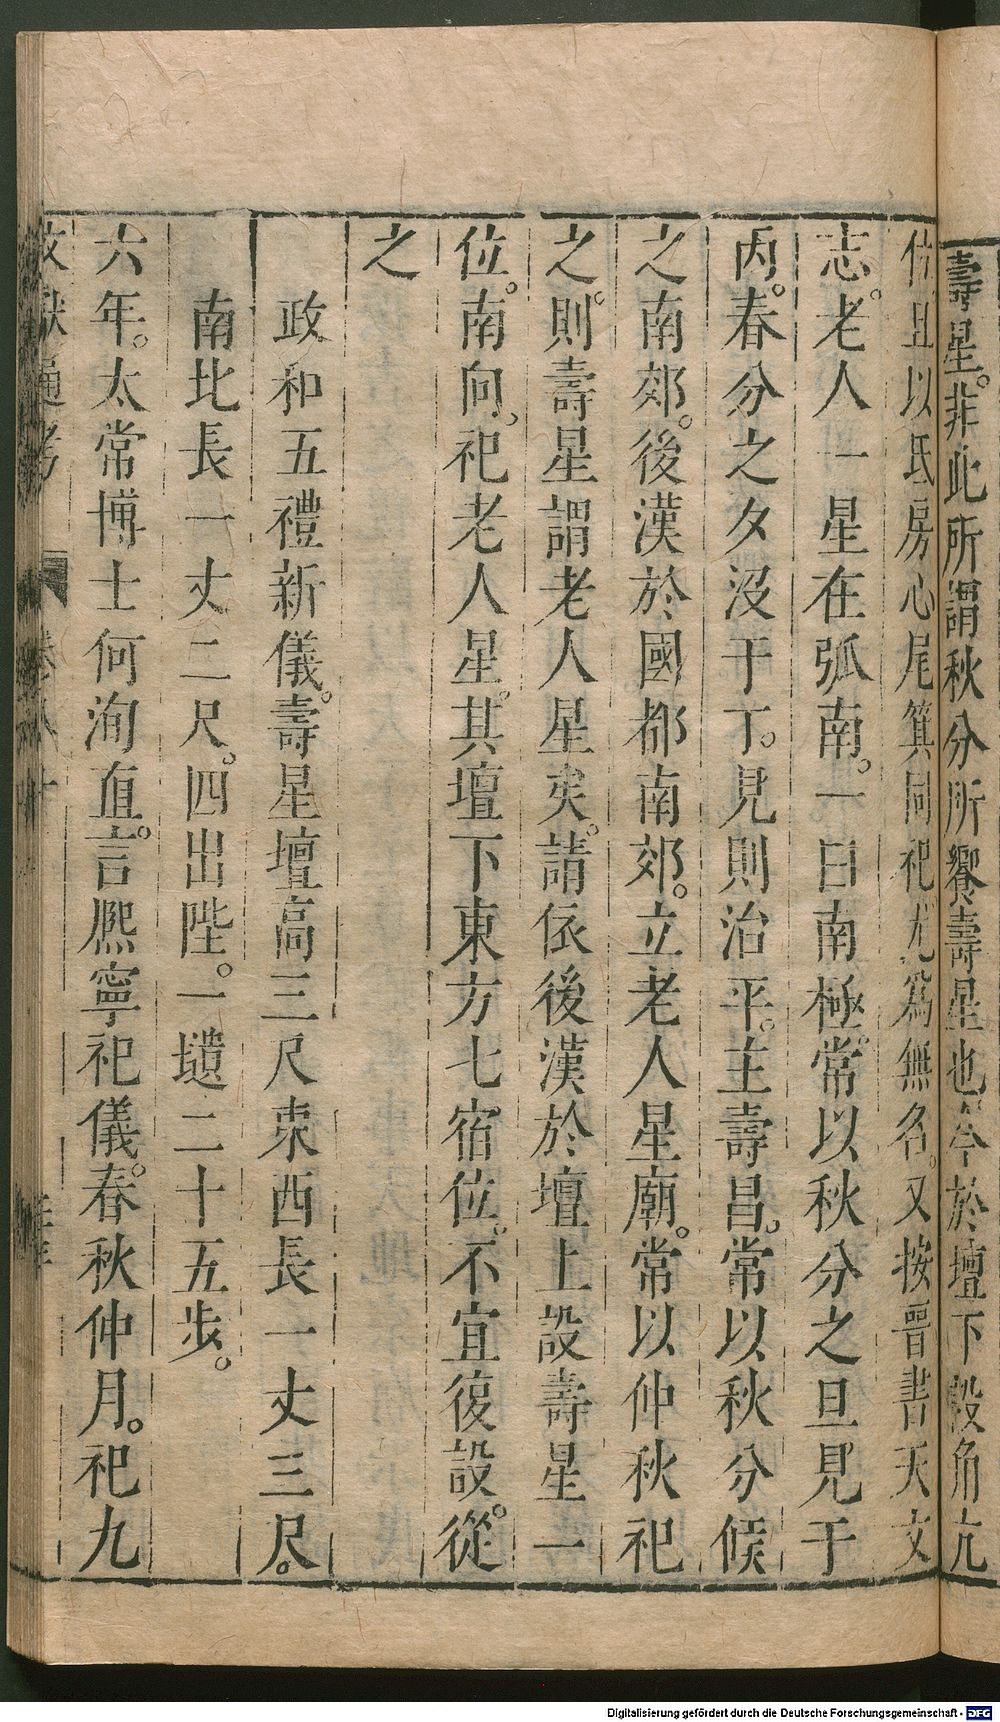 壽星。非此所謂秋分所饗壽星也今於壇下設角亢
位且以氐房心尾箕同祀尤爲無名。又按晉書天文
志。老人一星在弧南。一曰南極。常以秋分之旦見于
丙。春分之夕沒于丁。見則治平。主壽昌。常以秋分候
之南郊。後漢於國都南郊。立老人星廟。常以仲秋祀
之。則壽星謂老人星矣。請依後漢於壇上設壽星一
位。南向。祀老人星。其壇下東方七宿位。不宜復設。從
之
政和五禮新儀。壽星壇高三尺東西長一丈三尺。
南北長一丈二尺。四出陛。一壝二十五步。
六年。太常博士何洵直。言熈寧祀儀。春秋仲月。祀九
文獻通考 卷八十
Digitalisierung gefördert durch die Deutsche Forschungsgemeinschaft - DFG